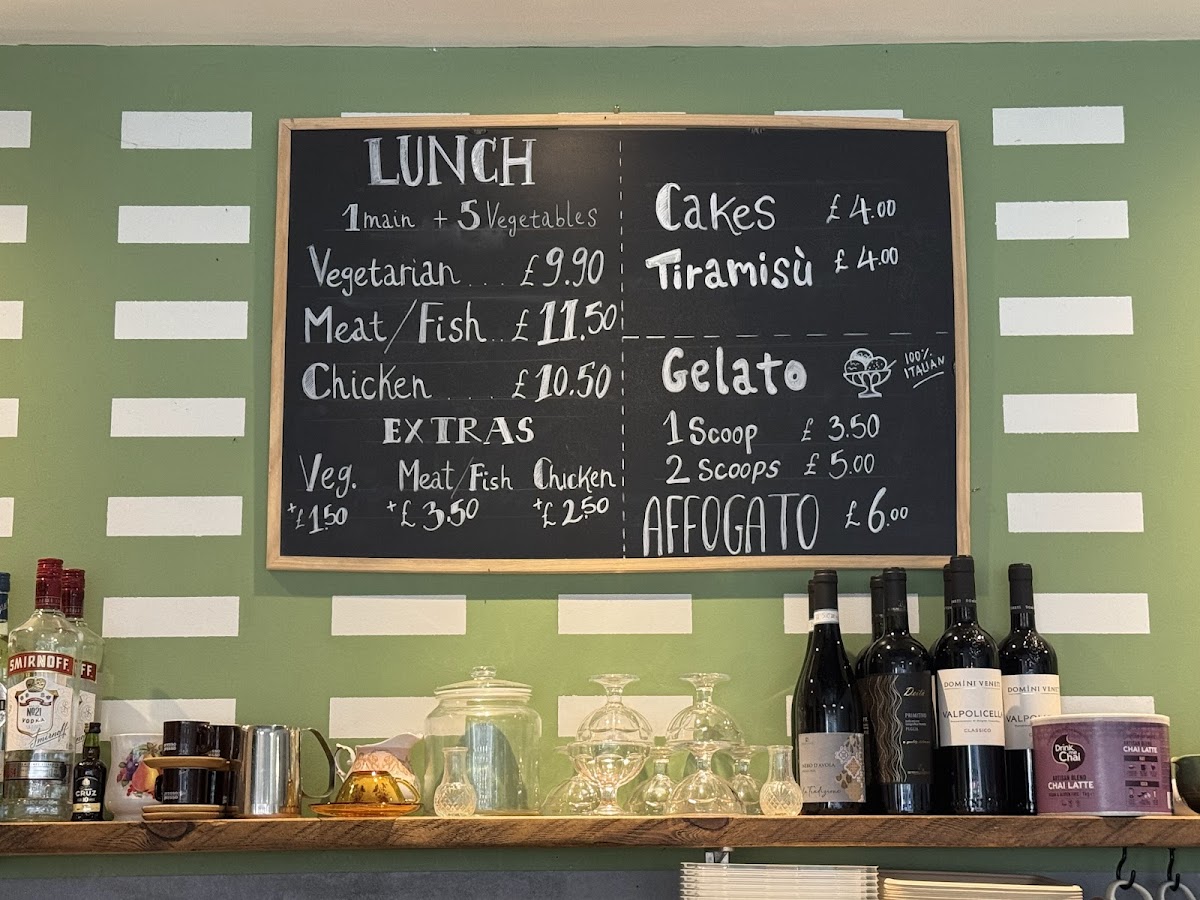 LUNCH
1 main + 5 Vegetables
Vegetarian ... £9.90
Meat/Fish .. £11.50
Chicken .... £10.50
EXTRAS
Veg. Meat/Fish Chicken
+£1.50 +£3.50 +£2.50
Cakes £4.00
Tiramisù £4.00
Gelato 100% ITALIAN
1 Scoop £ 3.50
2 Scoops £ 5.00
AFFOGATO £6.00
SMIRNOFF
No21
VODKA
Smirnoff
CRUZ
DOMÌNI VENETI
VALPOLICELLA
CLASSICO
DOMÌNI VENETI
Drink me Chai
ARTISAN BLEND
CHAI LATTE
CHAI LATTE